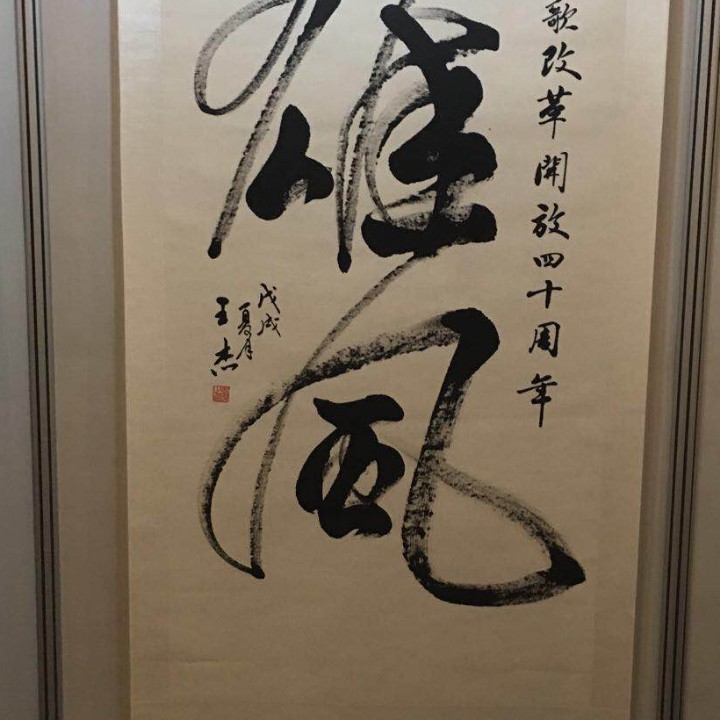 歌改革開放四十周年
雄風
戊戌
夏月
王杰